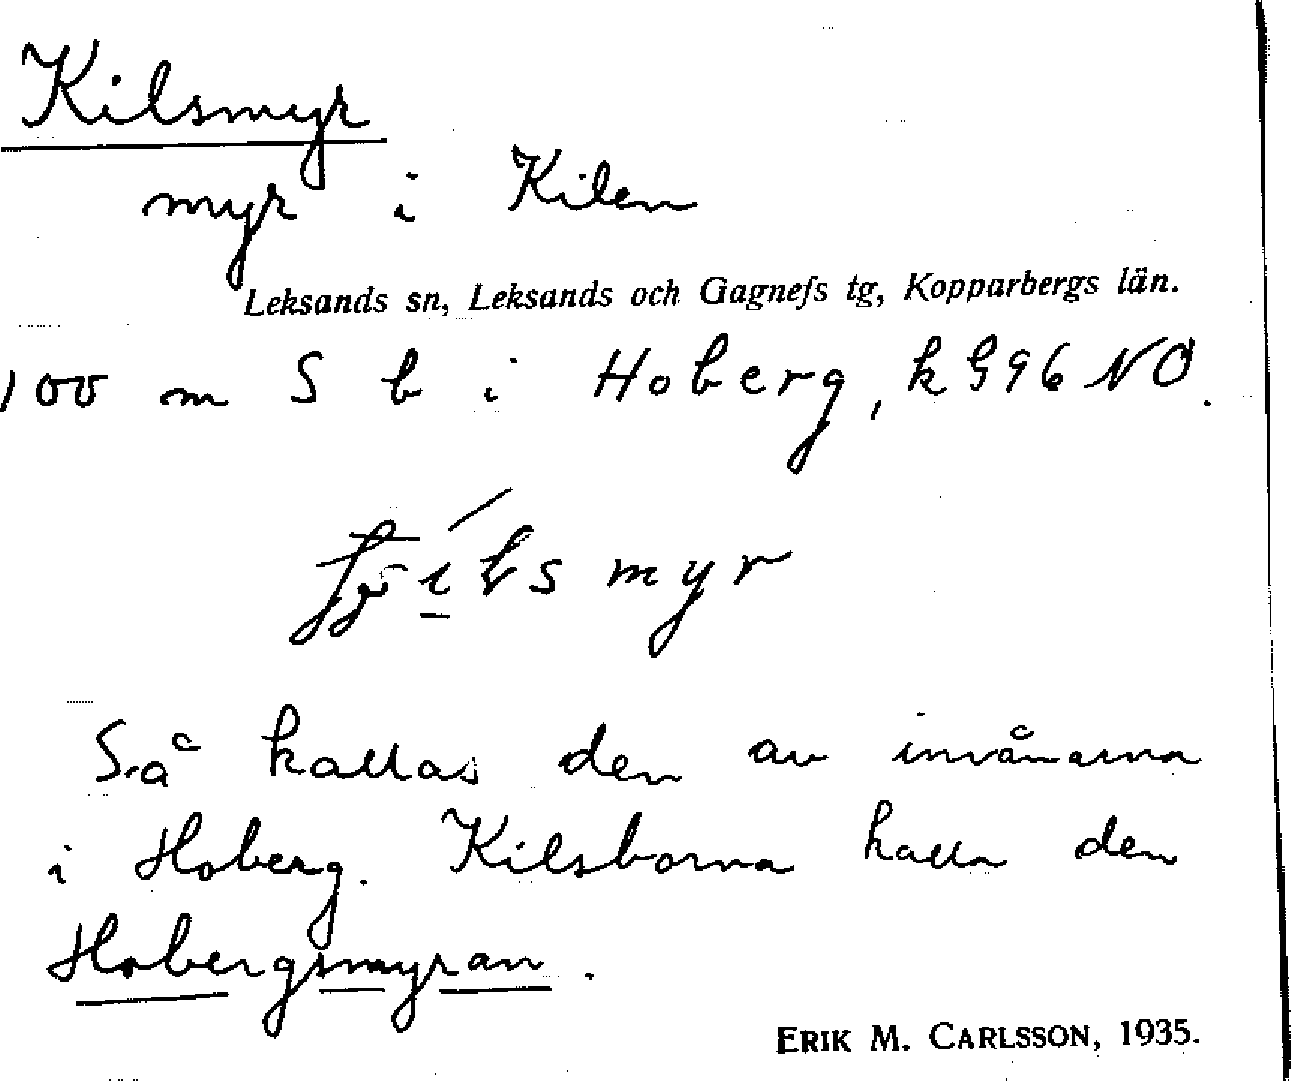 Kilsmyr
myr i Kilen
Leksands sn, Leksands och Gagnefs tg, Kopparbergs län.
100 m S b i Hoberg, k 996 NO.
smyr
Så kallas den av invånarna
i Hoberg. Kilsborna kalla den
Hobergsmyran.
ERIK M. CARLSSON, 1935.